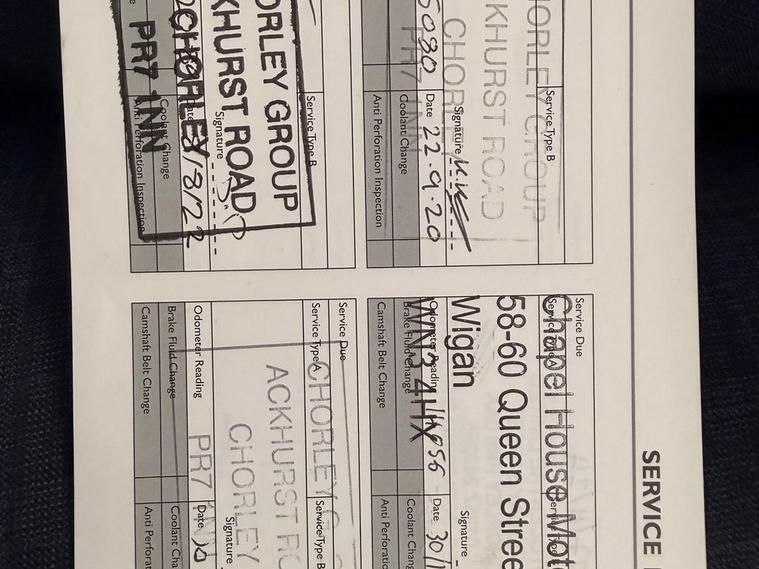 SERVICE
Service Due
Chapel House Mot
58-60 Queen Stree
Wigan
WN3 4HX
Odometer Reading
Date 30/1
Signature
Brake Fluid Change
Coolant Chang
Camshaft Belt Change
Anti Perforatio
HORLEY GROUP
Service Type B
KHURST ROAD
CHOR
Signature
5080 Date 22.9.20
PR7 1NN
Coolant Change
Anti Perforation Inspection
Service Due
Service Type A
Service Type B
CHORLEY G
ACKHURST RO
CHORLEY
Signature
Odometer Reading
PR7 1N
Date
Brake Fluid Change
Coolant Cha
Camshaft Belt Change
Anti Perforat
Service Type B
ORLEY GROUP
KHURST ROAD
Signature
CHORLEY
/8/22
PR7 1NN
Coolant Change
Anti Perforation Inspection